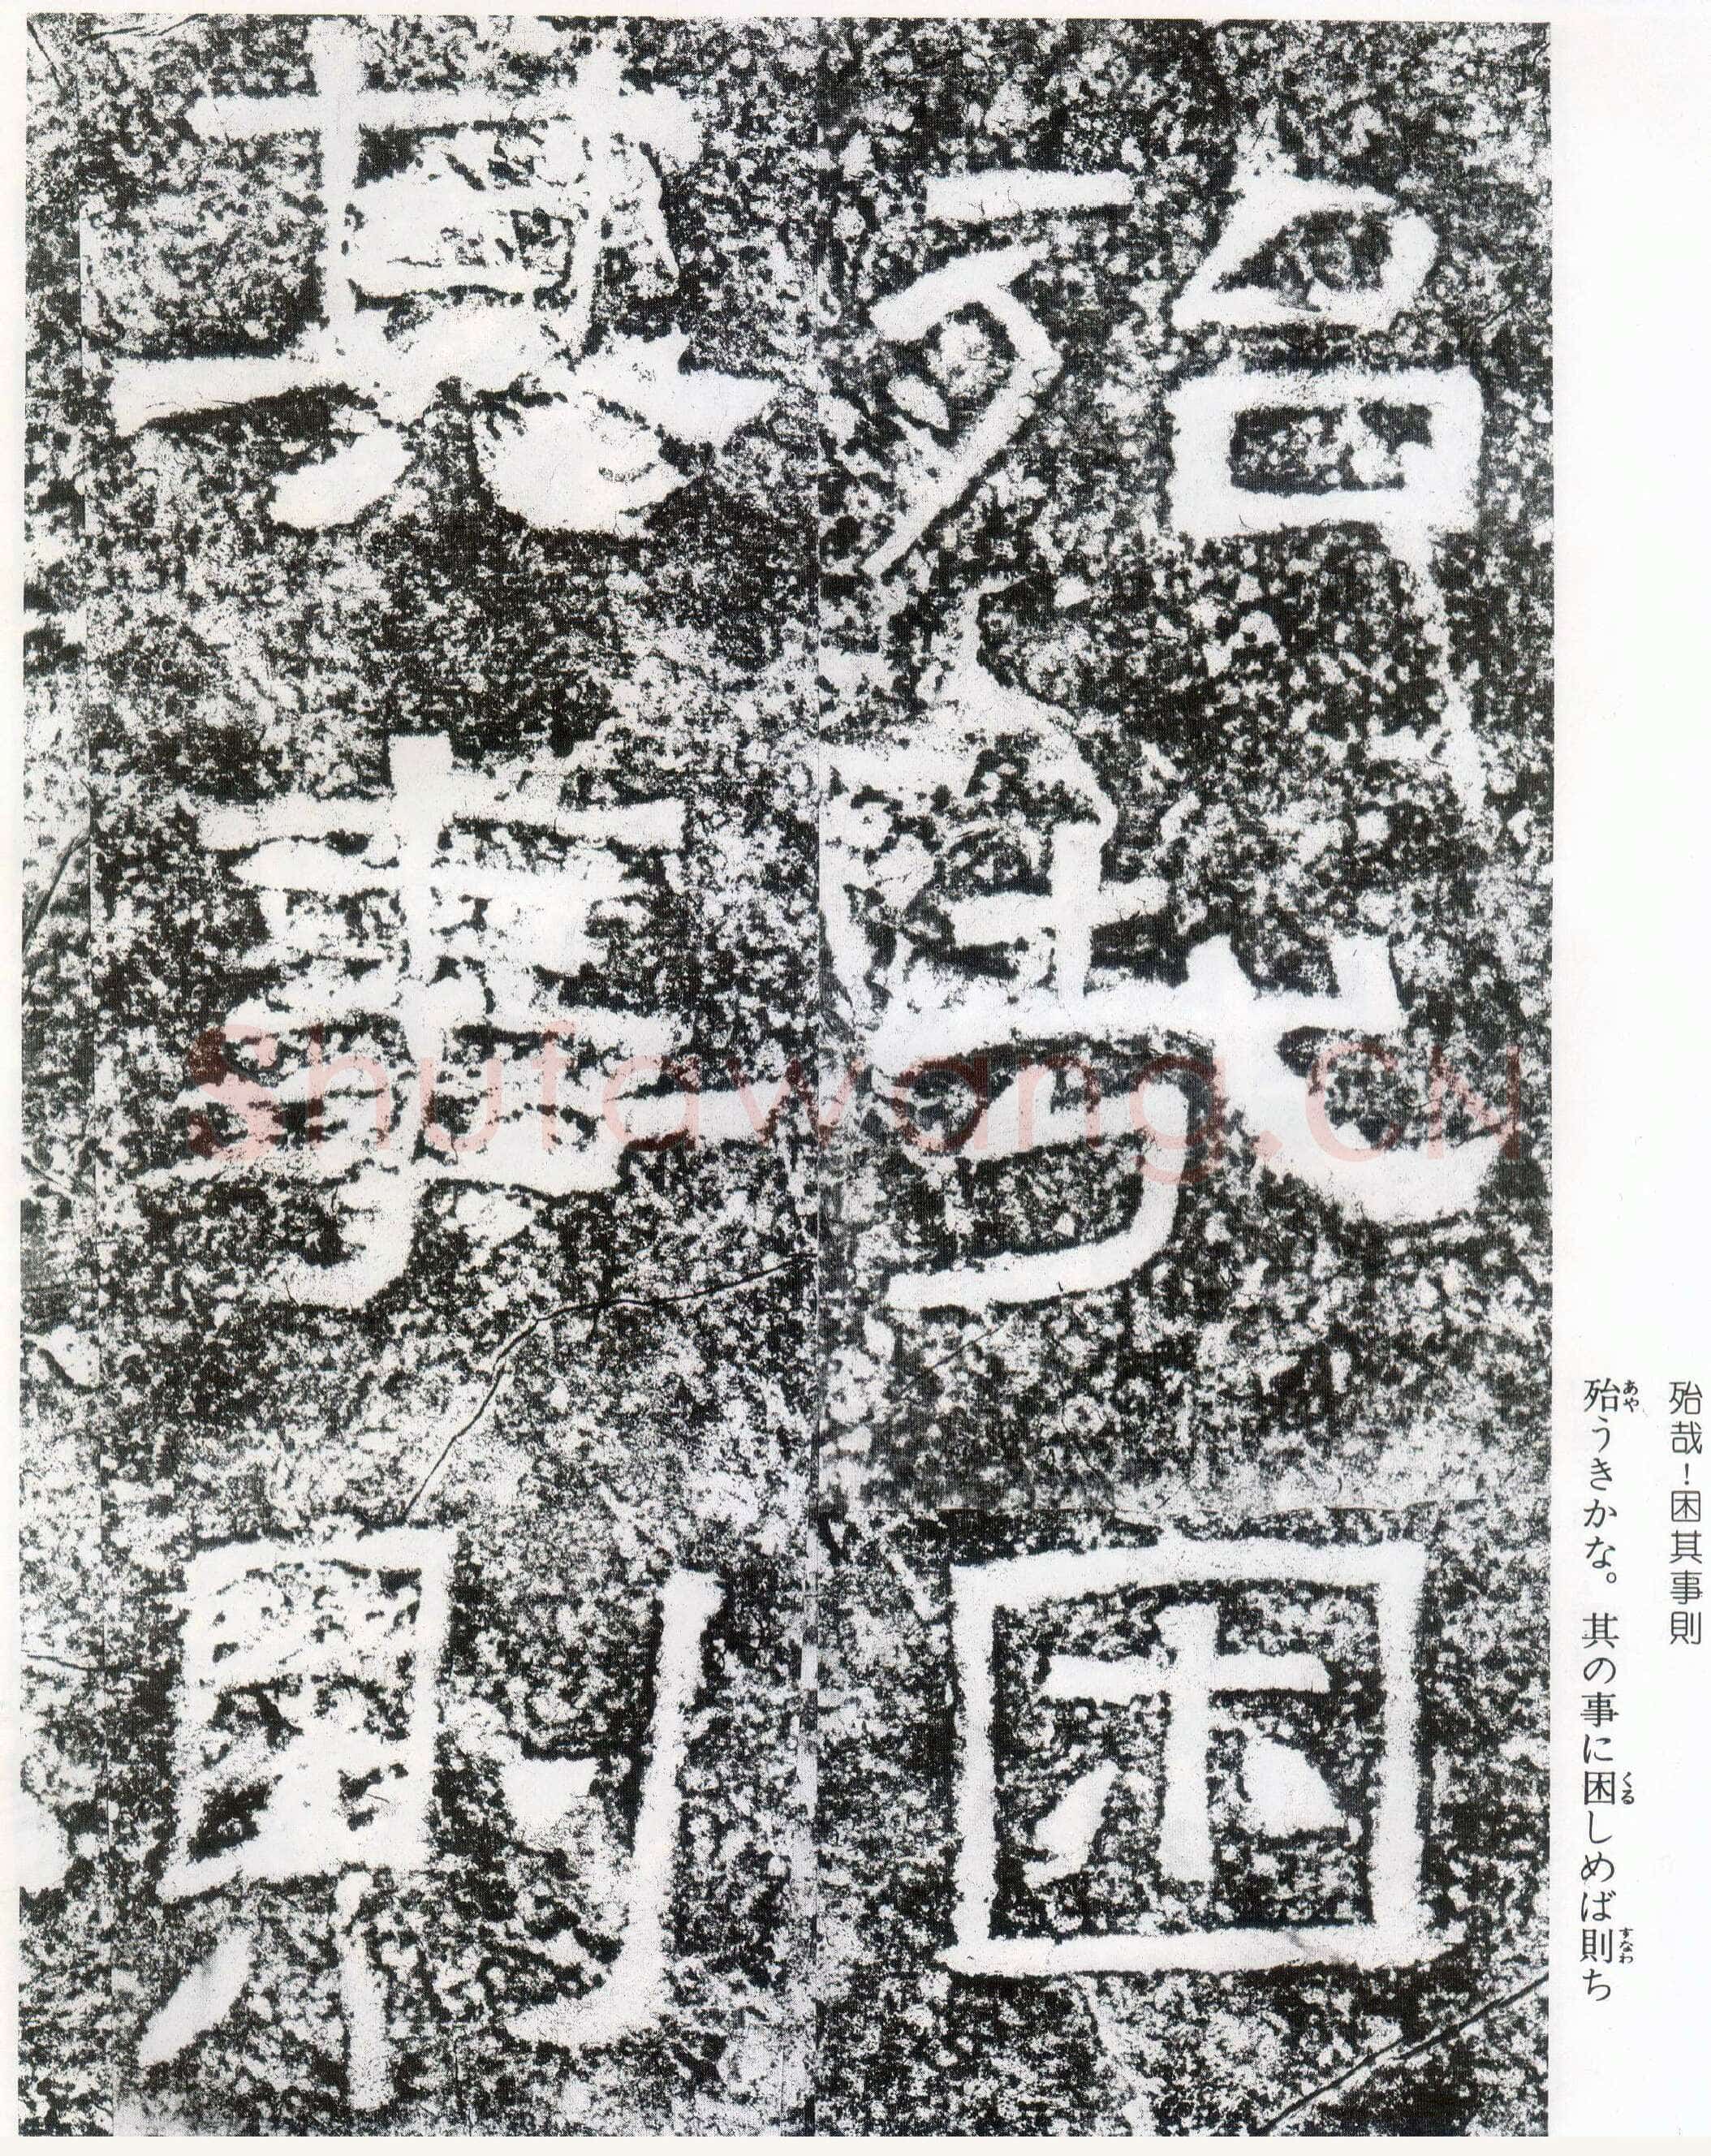 殆哉困
其事則
殆哉！困其事則
殆うきかな。其の事に困しめば則ち
あや
くる
すなわ
Shufawang.CN